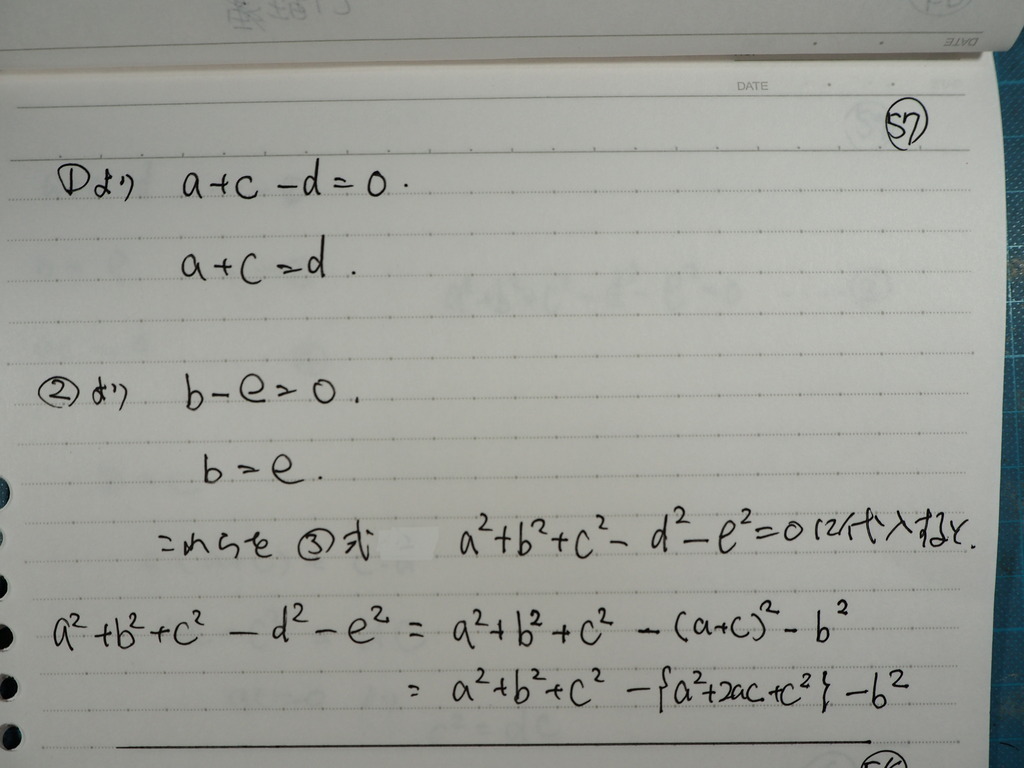 DATE
57
①より a+c-d=0.
a+c=d.
②より b-e=0.
b=e.
これらを③式 a²+b²+c²-d²-e²=0に代入すると.
a²+b²+c²-d²-e² = a²+b²+c²-(a+c)²-b²
= a²+b²+c²-{a²+2ac+c²}-b²